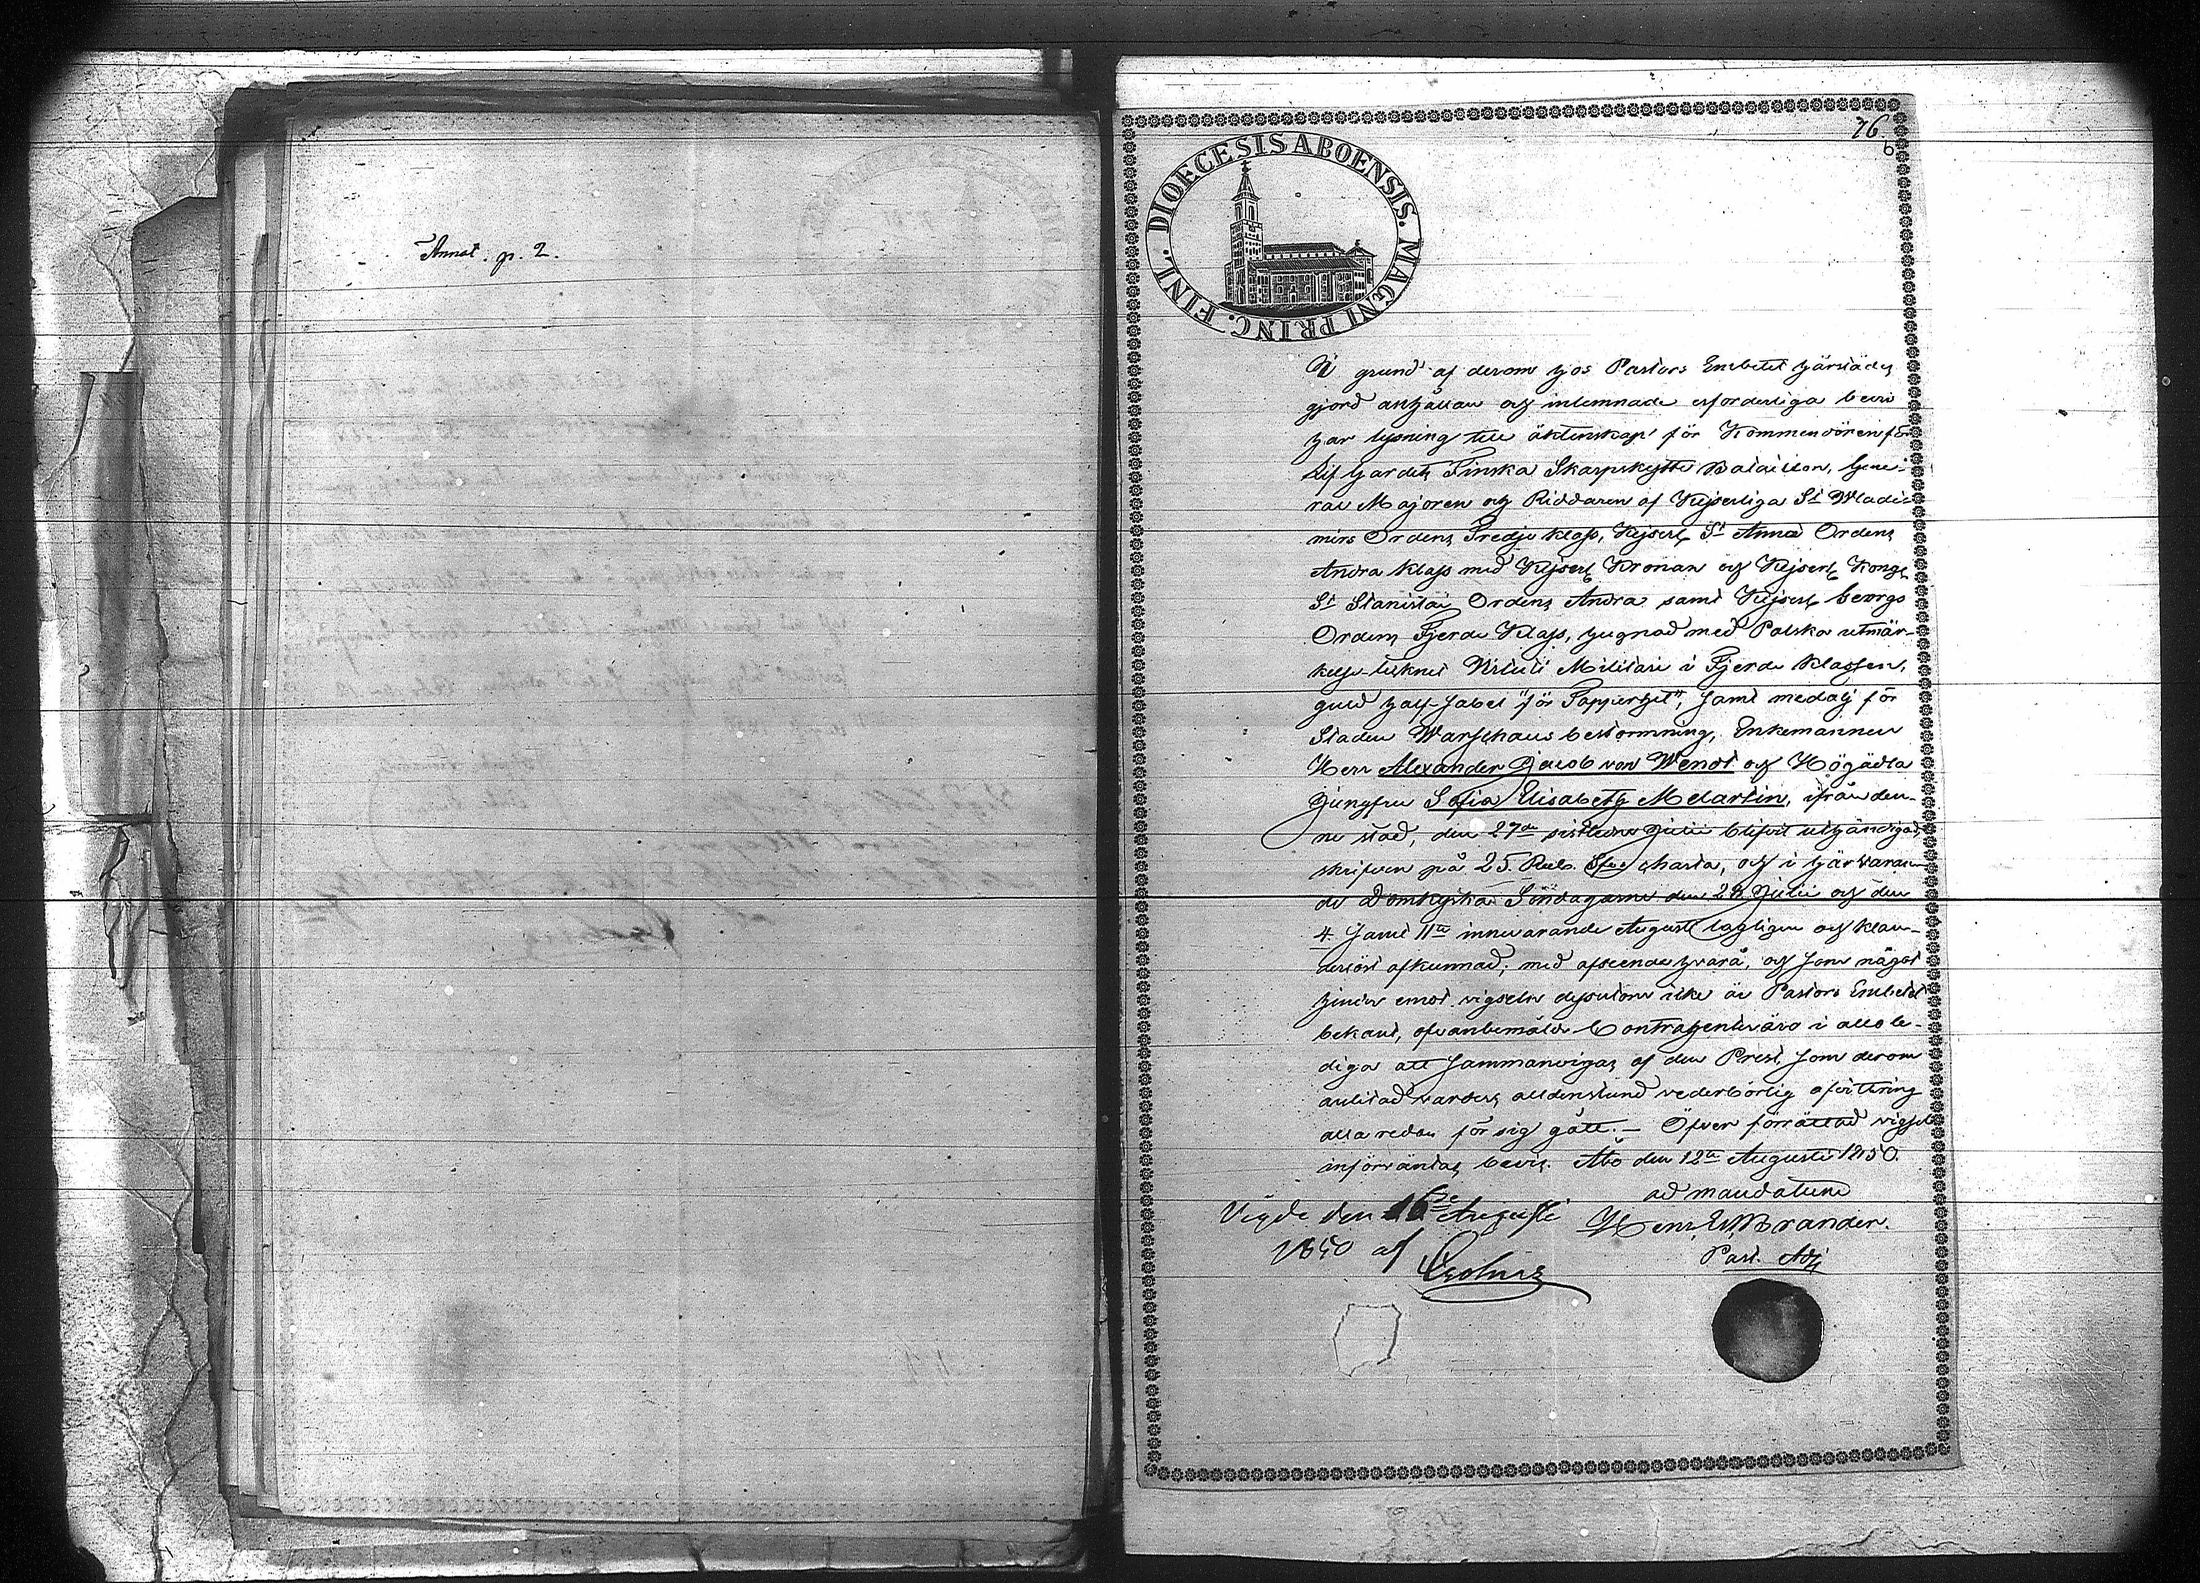 Annot. p. 2.
76
6
DIOECESIS ABOENSIS. MAGNI PRINC. FINL.
På grund af derom hos Pastors Embetet härstädes
gjord anhållan och inlemnade erforderliga bevis
har lysning till äktenskap för Kommendören för
Lif Gardets Finska Skarpskytte Bataillon, Gene-
ral Majoren och Riddaren af Kejserliga St Wladi-
mirs Ordens Tredje klass, Kejserl. St Annæ Ordens
Andra klass med Kejserl. Kronan och Kejserl. Kongl.
St Stanislai Ordens Andra samt Kejserl. Georgs
Ordens Fjerde Klass, hugnad med Polska utmär-
kelse-tecknet Virtuti Militari i Fjerde klassen,
guld half-sabel "för Tapperhet", samt medalj för
Staden Warschaus bestormning, Enkemannen
Herr Alexander Jacob von Wendt och Högädla
Jungfru Sofia Elisabeth Melartin, ifrån den-
ne stad, den 27de sistledne Julii blifvit uthändigad,
skrifven på 25 Rub. charta, och i härvaran-
de Domkyrka Söndagarne den 28 Julii och den
4 samt 11te innevarande Augusti lagligen och klan-
derlöst afkunnad; med afseende hvarå, och som något
hinder emot vigseln dessutom icke är Pastors Embetet
bekant, ofvanbemälde Contrahenter äro i allo le-
diga att sammanvigas af den Prest, som derom
anlitad varder, alldenstund vederbörlig afvittring
alla redan för sig gått. – Öfver förrättad vigsel
införväntas bevis. Åbo den 12te Augusti 1850.
ad mandatum
Vigde den 16de Augusti
Henr. Brander.
1850 af
Past. Adj.